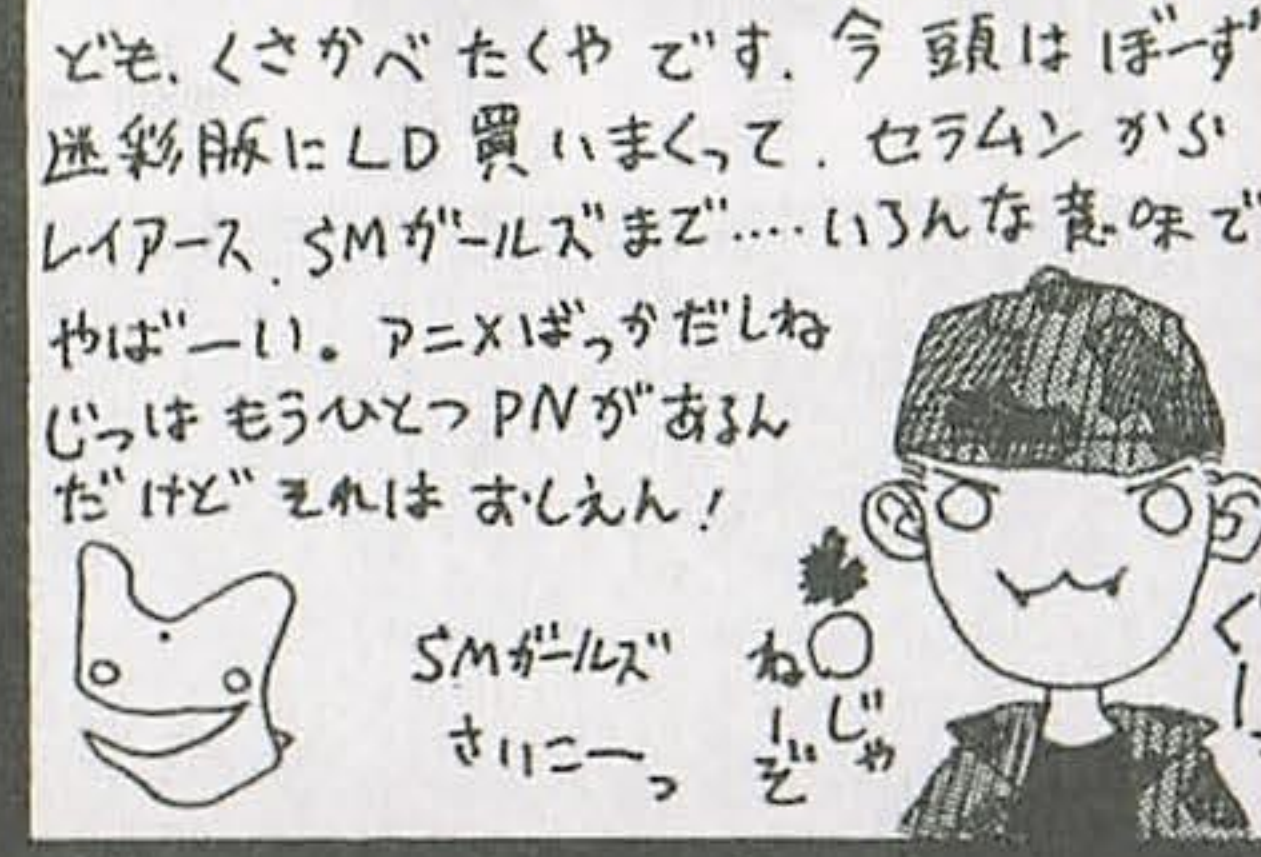 ども、くさかべ たくや です. 今 頭は ぼーず
迷彩服に LD 買いまくって. セラムン から
レイアース. SMガールズまで‥‥いろんな意味で
やばーい。アニメばっかだしね
じつは もうひとつ PNがあるん
だけど それは おしえん!
SMガールズ
さいこーっ
○じゃ
ねーぞ